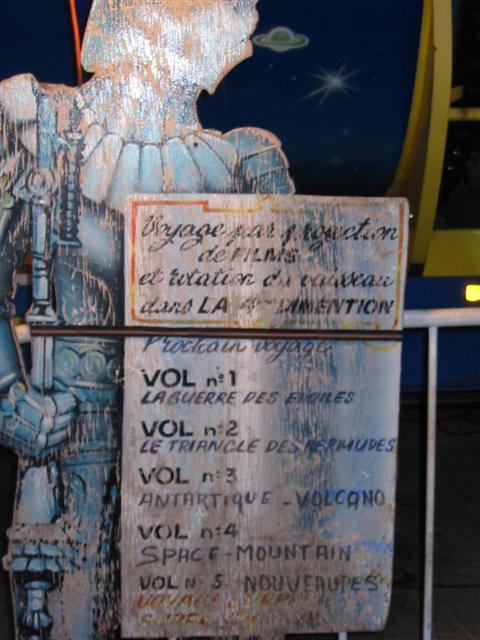 Voyage par projection
de FILMS
et rotation du vaisseau
dans LA 4ème DIMENTION
Prochain voyage
VOL n°1
LA GUERRE DES ETOILES
VOL n°2
LE TRIANGLE DES BERMUDES
VOL n°3
ANTARTIQUE - VOLCANO
VOL n°4
SPACE-MOUNTAIN
VOL N° 5 NOUVEAUTES
VOYAGE